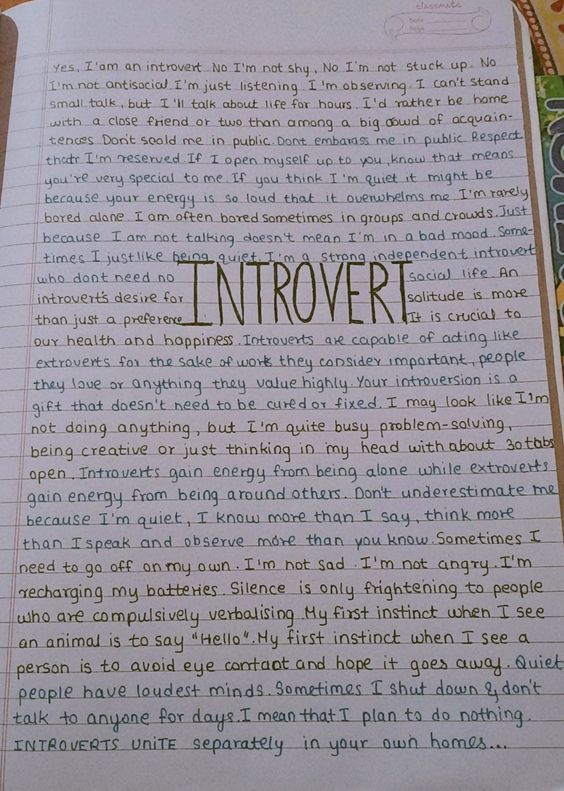 classmate
Date
Page
Yes, I'am an introvert. No I'm not shy, No I'm not stuck up. No
I'm not antisocial I'm just listening. I'm observing. I can't stand
small talk, but I'll talk about life for hours. I'd rather be home
with a close friend or two than among a big crowd of acquain-
tences Don't scold me in public. Dont embarass me in public Respect
that I'm reserved. If I open myself up to you, know that means
you're very special to me. If you think I'm quiet it might be
because your energy is so loud that it overwhelms me. I'm rarely
bored alone. I am often bored sometimes in groups and crowds. Just
because I am not talking doesn't mean I'm in a bad mood. Some-
times I just like being quiet. I'm a strong independent introvert
who dont need no social life. An
introvert's desire for solitude is more
than just a preference It is crucial to
INTROVERT
our health and happiness. Introverts are capable of acting like
extroverts for the sake of work they consider important, people
they love or anything they value highly. Your introversion is a
gift that doesn't need to be cured or fixed. I may look like I'm
not doing anything, but I'm quite busy problem-solving,
being creative or just thinking in my head with about 30 tabs
open. Introverts gain energy from being alone while extroverts
gain energy from being around others. Don't underestimate me
because I'm quiet, I know more than I say, think more
than I speak and observe more than you know. Sometimes I
need to go off on my own. I'm not sad. I'm not angry. I'm
recharging my batteries. Silence is only frightening to people
who are compulsively verbalising. My first instinct when I see
an animal is to say "Hello". My first instinct when I see a
person is to avoid eye contact and hope it goes away. Quiet
people have loudest minds. Sometimes I shut down & don't
talk to anyone for days. I mean that I plan to do nothing.
INTROVERTS UNiTE separately in your own homes...